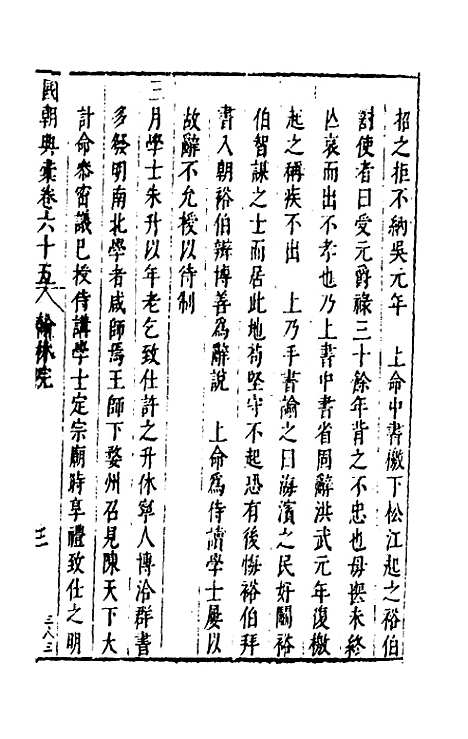 招之拒不納吳元年　上命中書檄下松江起之裕伯
對使者曰受元爵祿三十餘年背之不忠也母喪未終
忘哀而出不孝也乃上書中書省固辭洪武元年復檄
起之稱疾不出　上乃手書諭之曰海濱之民好鬭裕
伯智謀之士而居此地苟堅守不起恐有後悔裕伯拜
書入朝裕伯辨博善為辭說　上命為侍讀學士屢以
故辭不允授以待制
三月學士朱升以年老乞致仕許之升休寧人博洽群書
多發明南北學者咸師焉王師下婺州召見陳天下大
計命叅密議已授侍講學士定宗廟時享禮致仕之明
國朝典彙卷六十五　翰林院　三
三八三